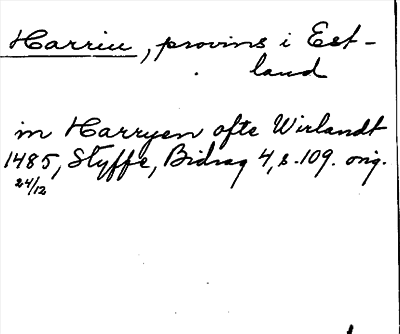 Harrien, provins i Est-
land
in Harryen ofte Wirlandt
1485, Styffe, Bidrag 4, s. 109. orig.
24/12